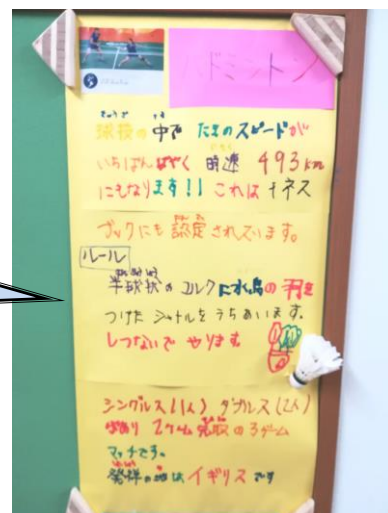 バドミントン
球技の中で たまのスピードが
いちばんはやく 時速 493km
にもなります!! これは ギネス
ブックにも 認定 されています。
ルール
半球状の コルクに水鳥の 羽を
つけた シャトルを うちあいます。
しつないで やります。
シングルス(1人) ダブルス(2人)
があり 2ゲーム先取の 3ゲーム
マッチです。
発祥の地は イギリス です